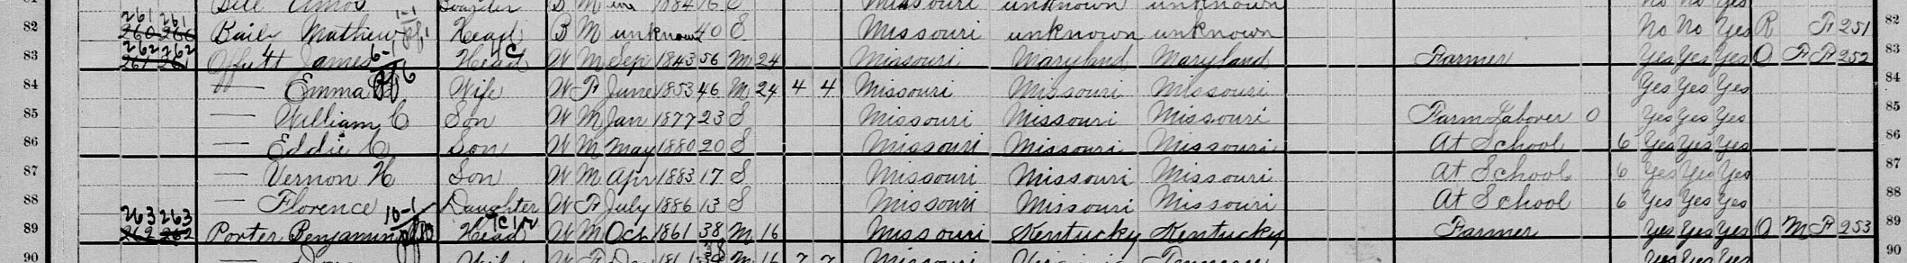 Bell Amos Boarder B M 1884 16 S Missouri unknown unknown No No Yes
82 261 261 Mathew Head B M unknown 40 S Missouri unknown unknown No No Yes R F 251 82
262 262 Offutt James Head W M Sep 1843 56 M 24 Missouri Maryland Maryland Farmer Yes Yes Yes O F F 252 83
84 — Emma Wife W F June 1853 46 M 24 4 4 Missouri Missouri Missouri Yes Yes Yes 84
85 — William C Son W M Jan 1877 23 S Missouri Missouri Missouri Farm Laborer 0 Yes Yes Yes 85
86 — Eddie C Son W M May 1880 20 S Missouri Missouri Missouri At School 6 Yes Yes Yes 86
87 — Vernon H Son W M Apr 1883 17 S Missouri Missouri Missouri At School 6 Yes Yes Yes 87
88 — Florence Daughter W F July 1886 13 S Missouri Missouri Missouri At School 6 Yes Yes Yes 88
89 263 263 Porter Benjamin Head W M Oct 1861 38 M 16 Missouri Kentucky Kentucky Farmer Yes Yes Yes O M F 253 89
90 Wife W F 38 M 16 Missouri Yes Yes Yes 90